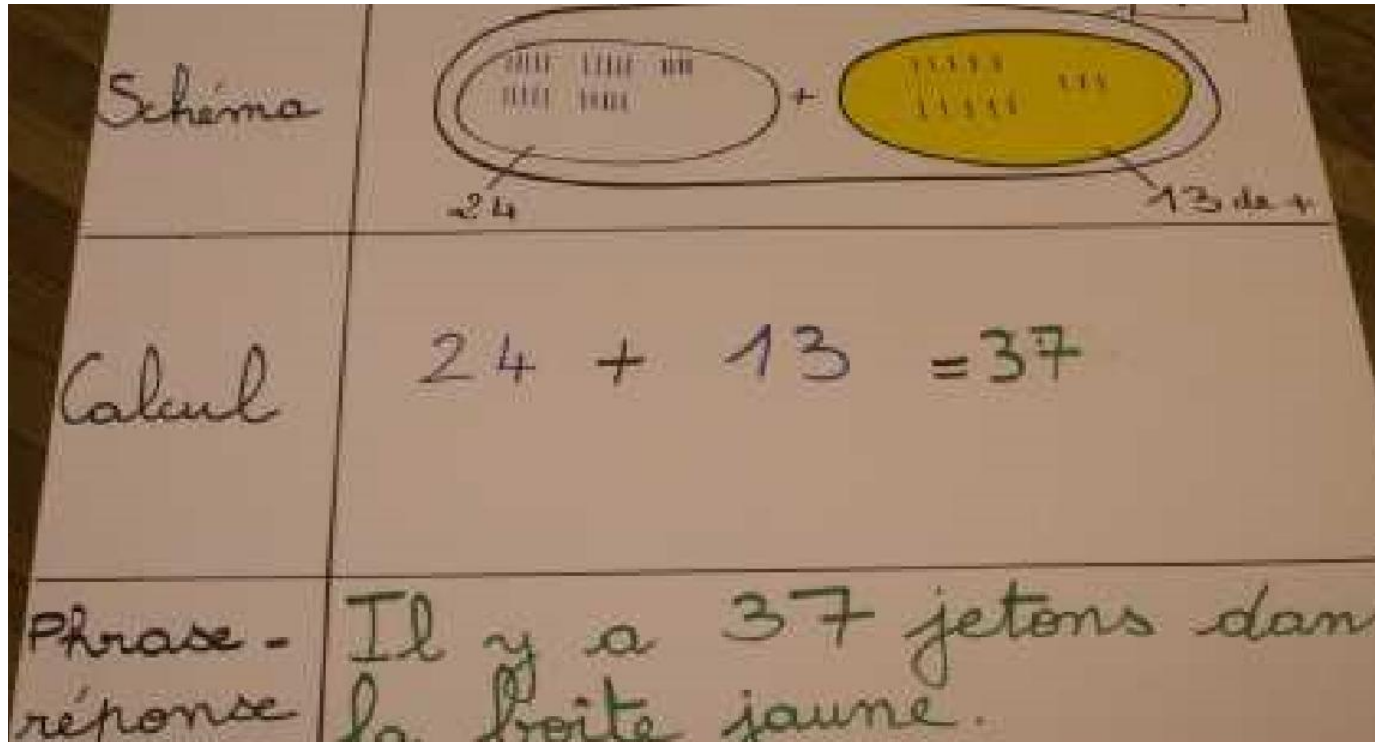 Schéma
+
24
13 de +
Calcul
24 + 13 = 37
Phrase-
réponse
Il y a 37 jetons dan
la boîte jaune.